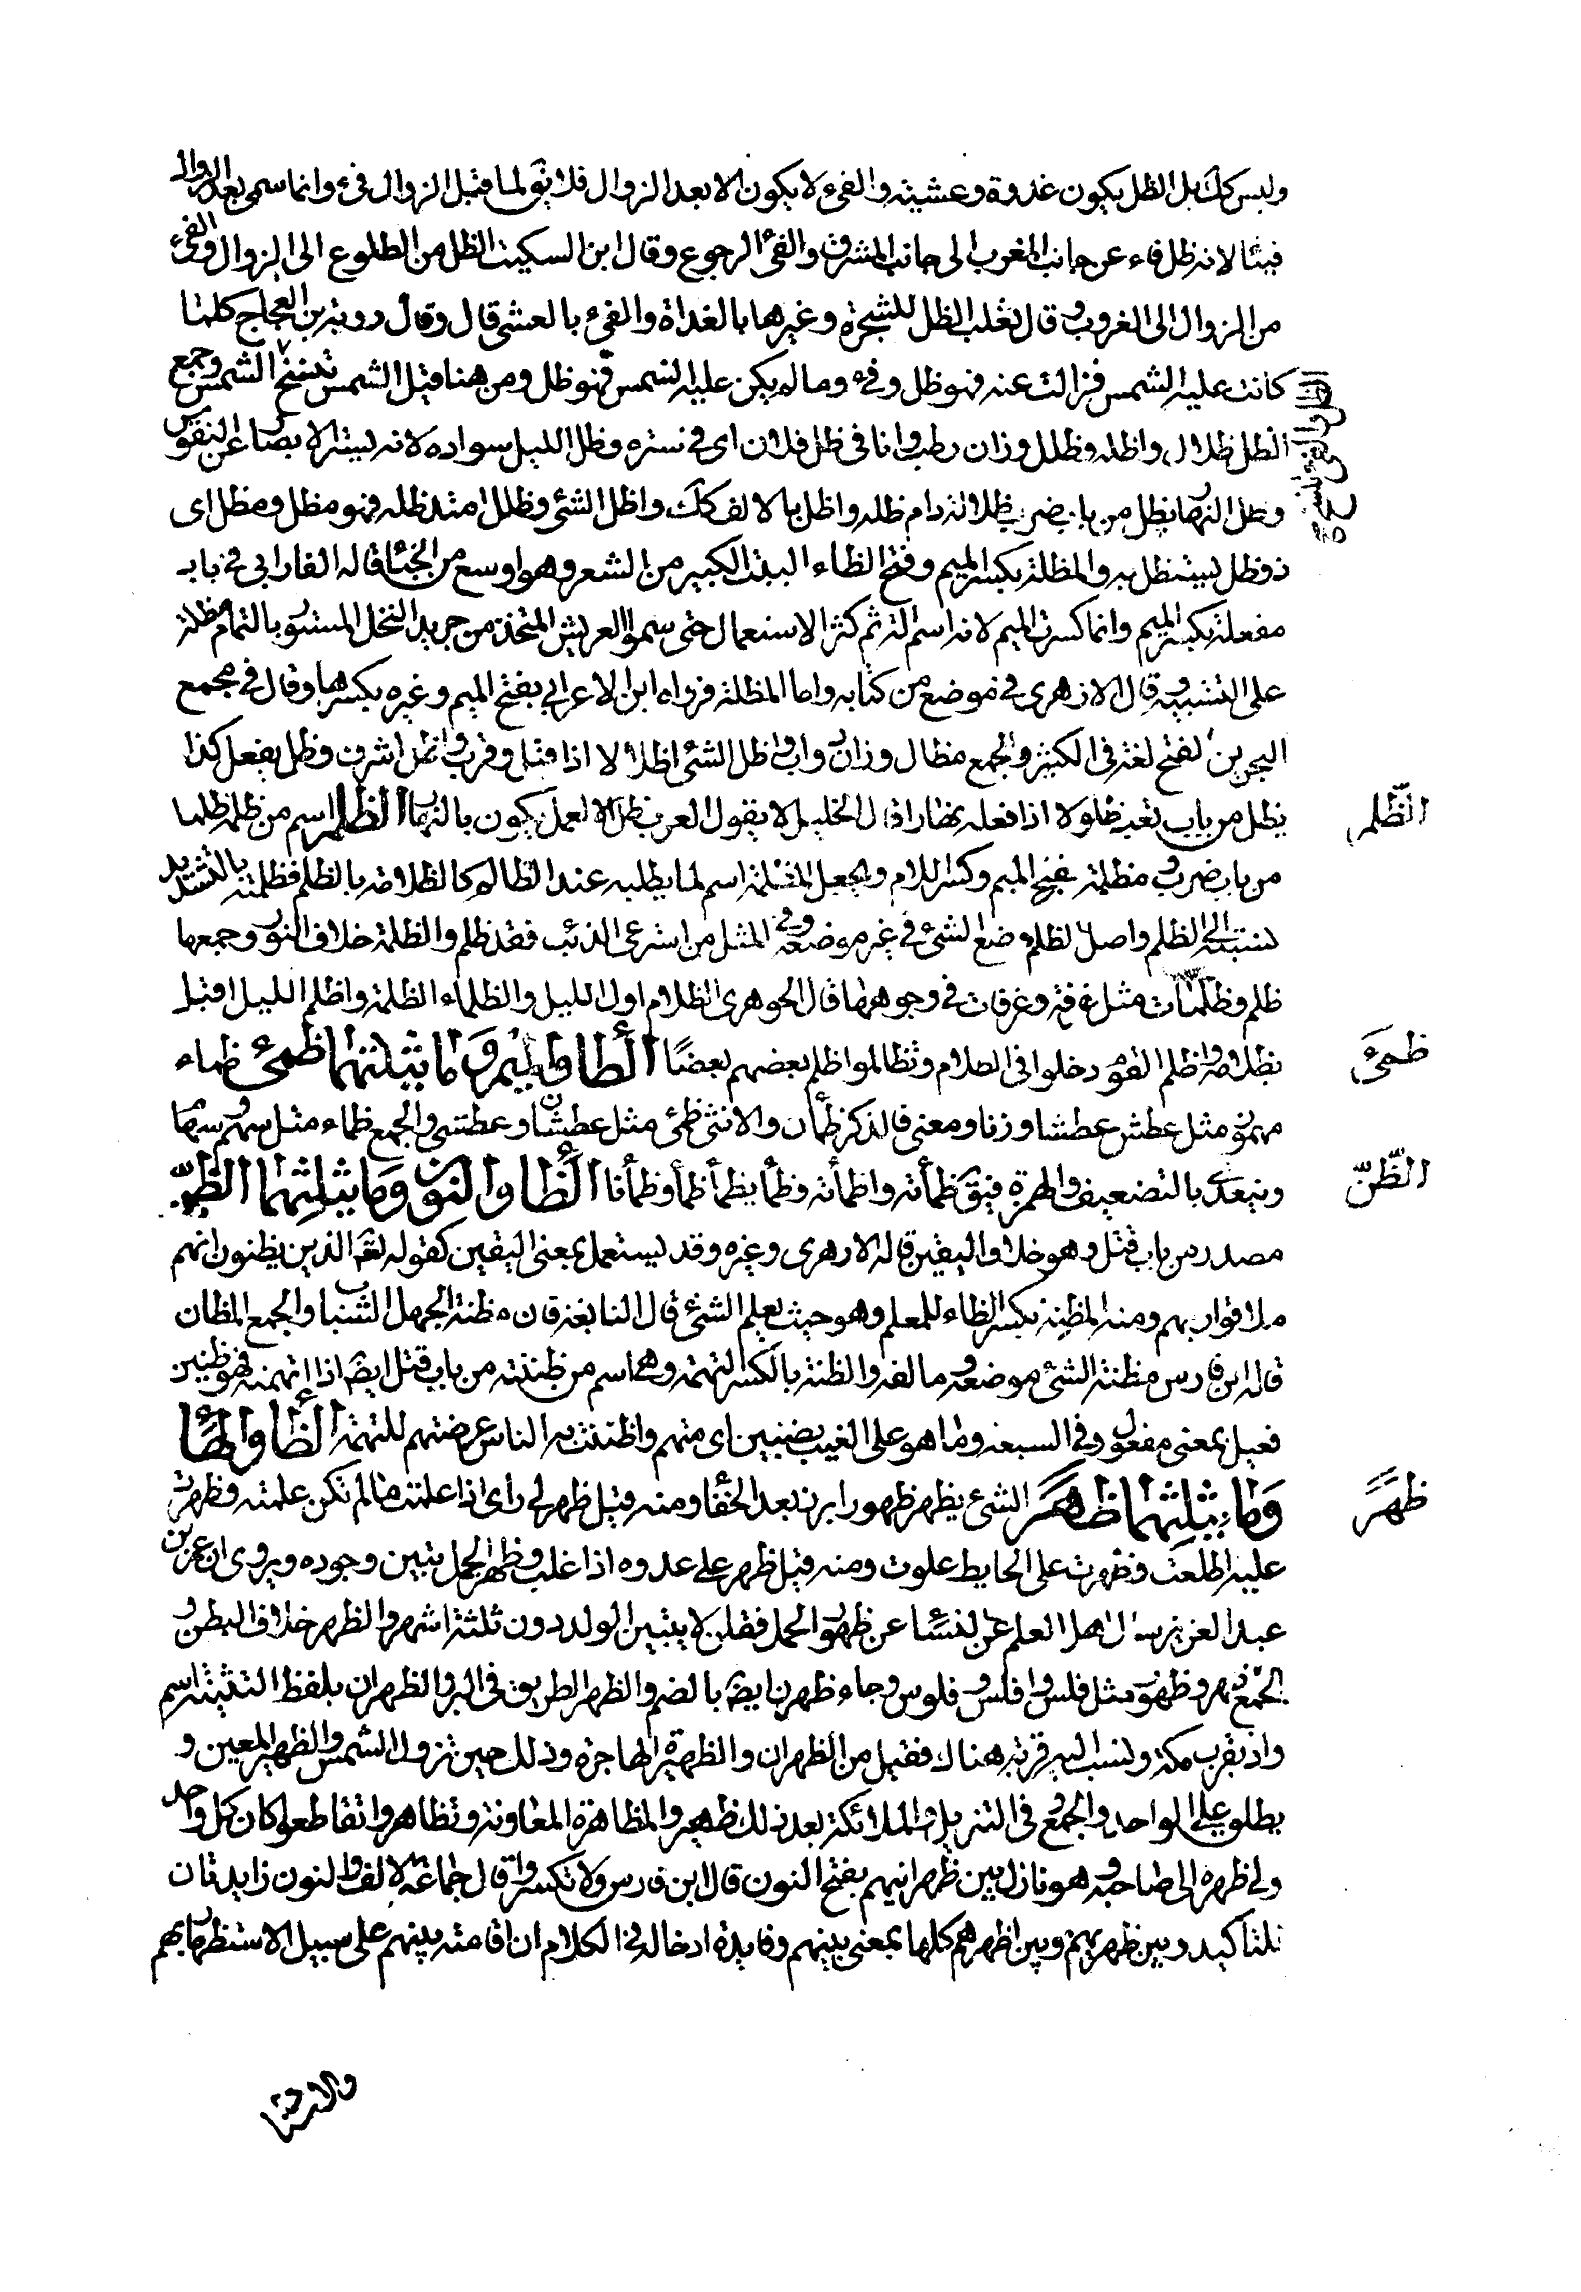 وليس كك بل الظل يكون غدوة وعشية والفىء لا يكون الا بعد الزوال فلا يق لما قبل الزوال فىء وانما سمى بعد الزوال
فيئا لانه ظل فاء عن جانب المغرب الى جانب المشرق والفىء الرجوع وقال ابن السكيت الظل من الطلوع الى الزوال والفىء
من الزوال الى الغروب وقال ثعلب الظل للشجرة وغيرها بالغداة والفىء بالعشى قال وقال روبة بن العجاج كلما
كانت عليه الشمس فزالت عنه فهو ظل وفىء وما لم يكن عليه الشمس فهو ظل ومن هنا قيل الشمس تنسخ الظل والفىء ينسخ الشمس وجمع
الظل ظلال واظلة وظلل وزان رطب وانا فى ظل فلان اى فى ستره وظل الليل سواده لانه يستر الابصار عن النفوس
وظل النهار يظل من باب ضرب ظلالة دام ظله واظل بالالف كك واظل الشئ وظلل امتد ظله فهو مظل ومظل اى
ذو ظل يستظل به والمظلة بكسر الميم وفتح الظاء البيت الكبير من الشعر وهو اوسع من الخبا قاله الفارابى فى باب
مفعلة بكسر الميم وانما كسرت الميم لانه اسم الة ثم كثر الاستعمال حتى سموا العريش المتخذ من جريد النخل المستور بالثمام مظلة
على التشبيه وقال الازهرى فى موضع من كتابه واما المظلة فرواه ابن الاعرابى بفتح الميم وغيره بكسرها وقال فى مجمع
البحرين الفتح لغة فى الكسر والجمع مظال وزان دواب واظل الشئ اظلالا اذا اقبل وقرب واظل اشرف وظل يفعل كذا
يظل من باب تعب ظلولا اذا فعله نهارا قال الخليل لا يقول العرب ظل الا لعمل يكون بالنهار الظلم اسم من ظلمه ظلما
من باب ضرب ومظلمة بفتح الميم وكسر اللام وتجعل المظلمة اسم لما يطلبه عند الظالم كالظلامة بالظلم فظلمته بالتشديد
نسبته الى الظلم واصل الظلم وضع الشئ فى غير موضعه وفى المثل من استرعى الذئب فقد ظلم والظلمة خلاف النور وجمعها
ظلم وظلمات مثل غرفة وغرفات فى وجوهها قال الجوهرى الظلام اول الليل والظلماء الظلمة واظلم الليل اقبل
بظلامه واظلم القوم دخلوا فى الظلام وتظالموا ظلم بعضهم بعضا الظا والميم وما يثلثهما ظمئ ظماء
مهموز مثل عطش عطشا وزنا ومعنى فالذكر ظمأن والانثى ظمئى مثل عطشان وعطشى والجمع ظماء مثل سهم وسهام
ويتعدى بالتضعيف والهمزة فيق ظمأته واظمأته وظمأ يظمأ ظمأ وظمأنا الظا والنون وما يثلثهما الظن
مصدر من باب قتل وهو خلاف اليقين قاله الازهرى وغيره وقد يستعمل بمعنى اليقين كقوله تعا الذين يظنون انهم
ملاقوا ربهم ومنه المظنة بكسر الظاء للمعلم وهو حيث يعلم الشئ قال النابغة فان مظنة الجهل الشباب والجمع المظان
قاله ابن فارس مظنة الشئ موضعه ومالفه والظنة بالكسر التهمة وهى اسم من ظننته من باب قتل ايضا اذا اتهمته فهو ظنين
فعيل بمعنى مفعول وفى السبعة وما هو على الغيب بضنين اى متهم واظننت به الناس عرضتهم للتهمة الظا والها
وما يثلثهما ظهر الشئ يظهر ظهورا برز بعد الخفا ومنه قيل ظهر لى راى اذا علمت ما لم تكن علمته وظهرت
عليه اطلعت وظهرت على الحايط علوت ومنه قيل ظهر على عدوه اذا غلب وظهر الحمل تبين وجوده ويروى ان عمر بن
عبد العزيز سال اهل العلم من النسا عن ظهور الحمل فقلن لا يتبين الولد دون ثلثة اشهر والظهر خلاف البطن و
الجمع اظهر وظهور مثل فلس وافلس وفلوس وجاء ظهران ايضا بالضم والظهر الطريق فى البر والظهران بلفظ التثنية اسم
واد بقرب مكة ونسب اليه قرية هناك فقيل من الظهران والظهيرة الهاجرة وذلك حين تزول الشمس والظهير المعين و
يطلق على الواحد والجمع وفى التنزيل والملائكة بعد ذلك ظهير والمظاهرة المعاونة وتظاهروا تقاطعوا كان كل واحد
ولى ظهره الى صاحبه وهو نازل بين ظهرانيهم بفتح النون قال ابن فارس ولا تكسر وقال جماعة الالف والنون زايدتان
للتاكيد وبين ظهريهم وبين اظهرهم كلها بمعنى بينهم وفايدة ادخاله فى الكلام ان اقامته بينهم على سبيل الاستظهار بهم
الظلم
ظمئ
الظن
ظهر